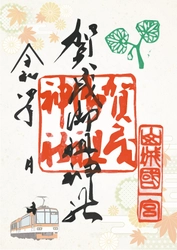 山城國一宮
賀茂御祖神社
賀茂
御祖
神社
令和
月